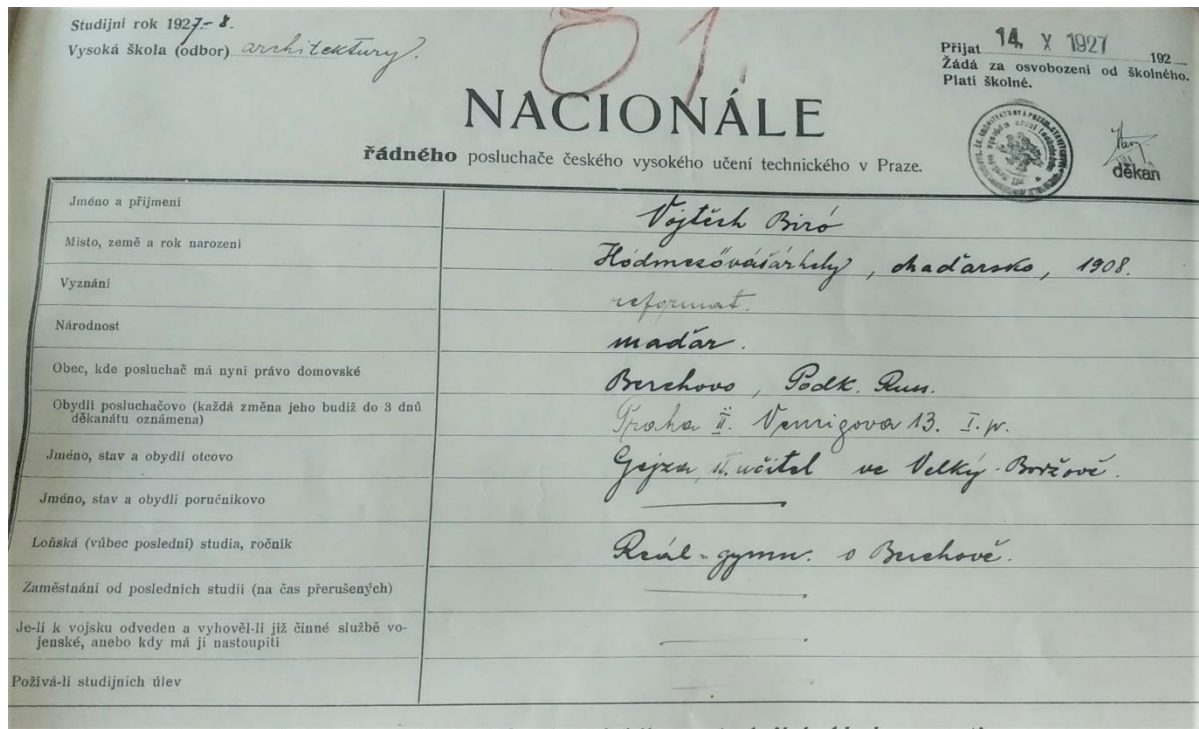 Studijní rok 1927-8.
Vysoká škola (odbor) architektury.
81.
Přijat 14. X 1927 192
Žádá za osvobození od školného.
Platí školné.
NACIONÁLE
řádného posluchače českého vysokého učení technického v Praze.
děkan
Jméno a příjmení Vojtěch Biró
Místo, země a rok narození Hódmezővásárhely, Maďarsko, 1908.
Vyznání reformat.
Národnost maďar.
Obec, kde posluchač má nyní právo domovské Berehovo, Podk. Rus.
Obydlí posluchačovo (každá změna jeho budiž do 3 dnů
děkanátu oznámena) Praha II. 13. I. p.
Jméno, stav a obydlí otcovo Gejza, st. učitel ve Velký-Boržové.
Jméno, stav a obydlí poručníkovo
Loňská (vůbec poslední) studia, ročník Reál-gymn. v Berehově.
Zaměstnání od posledních studií (na čas přerušených)
Je-li k vojsku odveden a vyhověl-li již činné službě vo-
jenské, anebo kdy má ji nastoupiti
Požívá-li studijních úlev